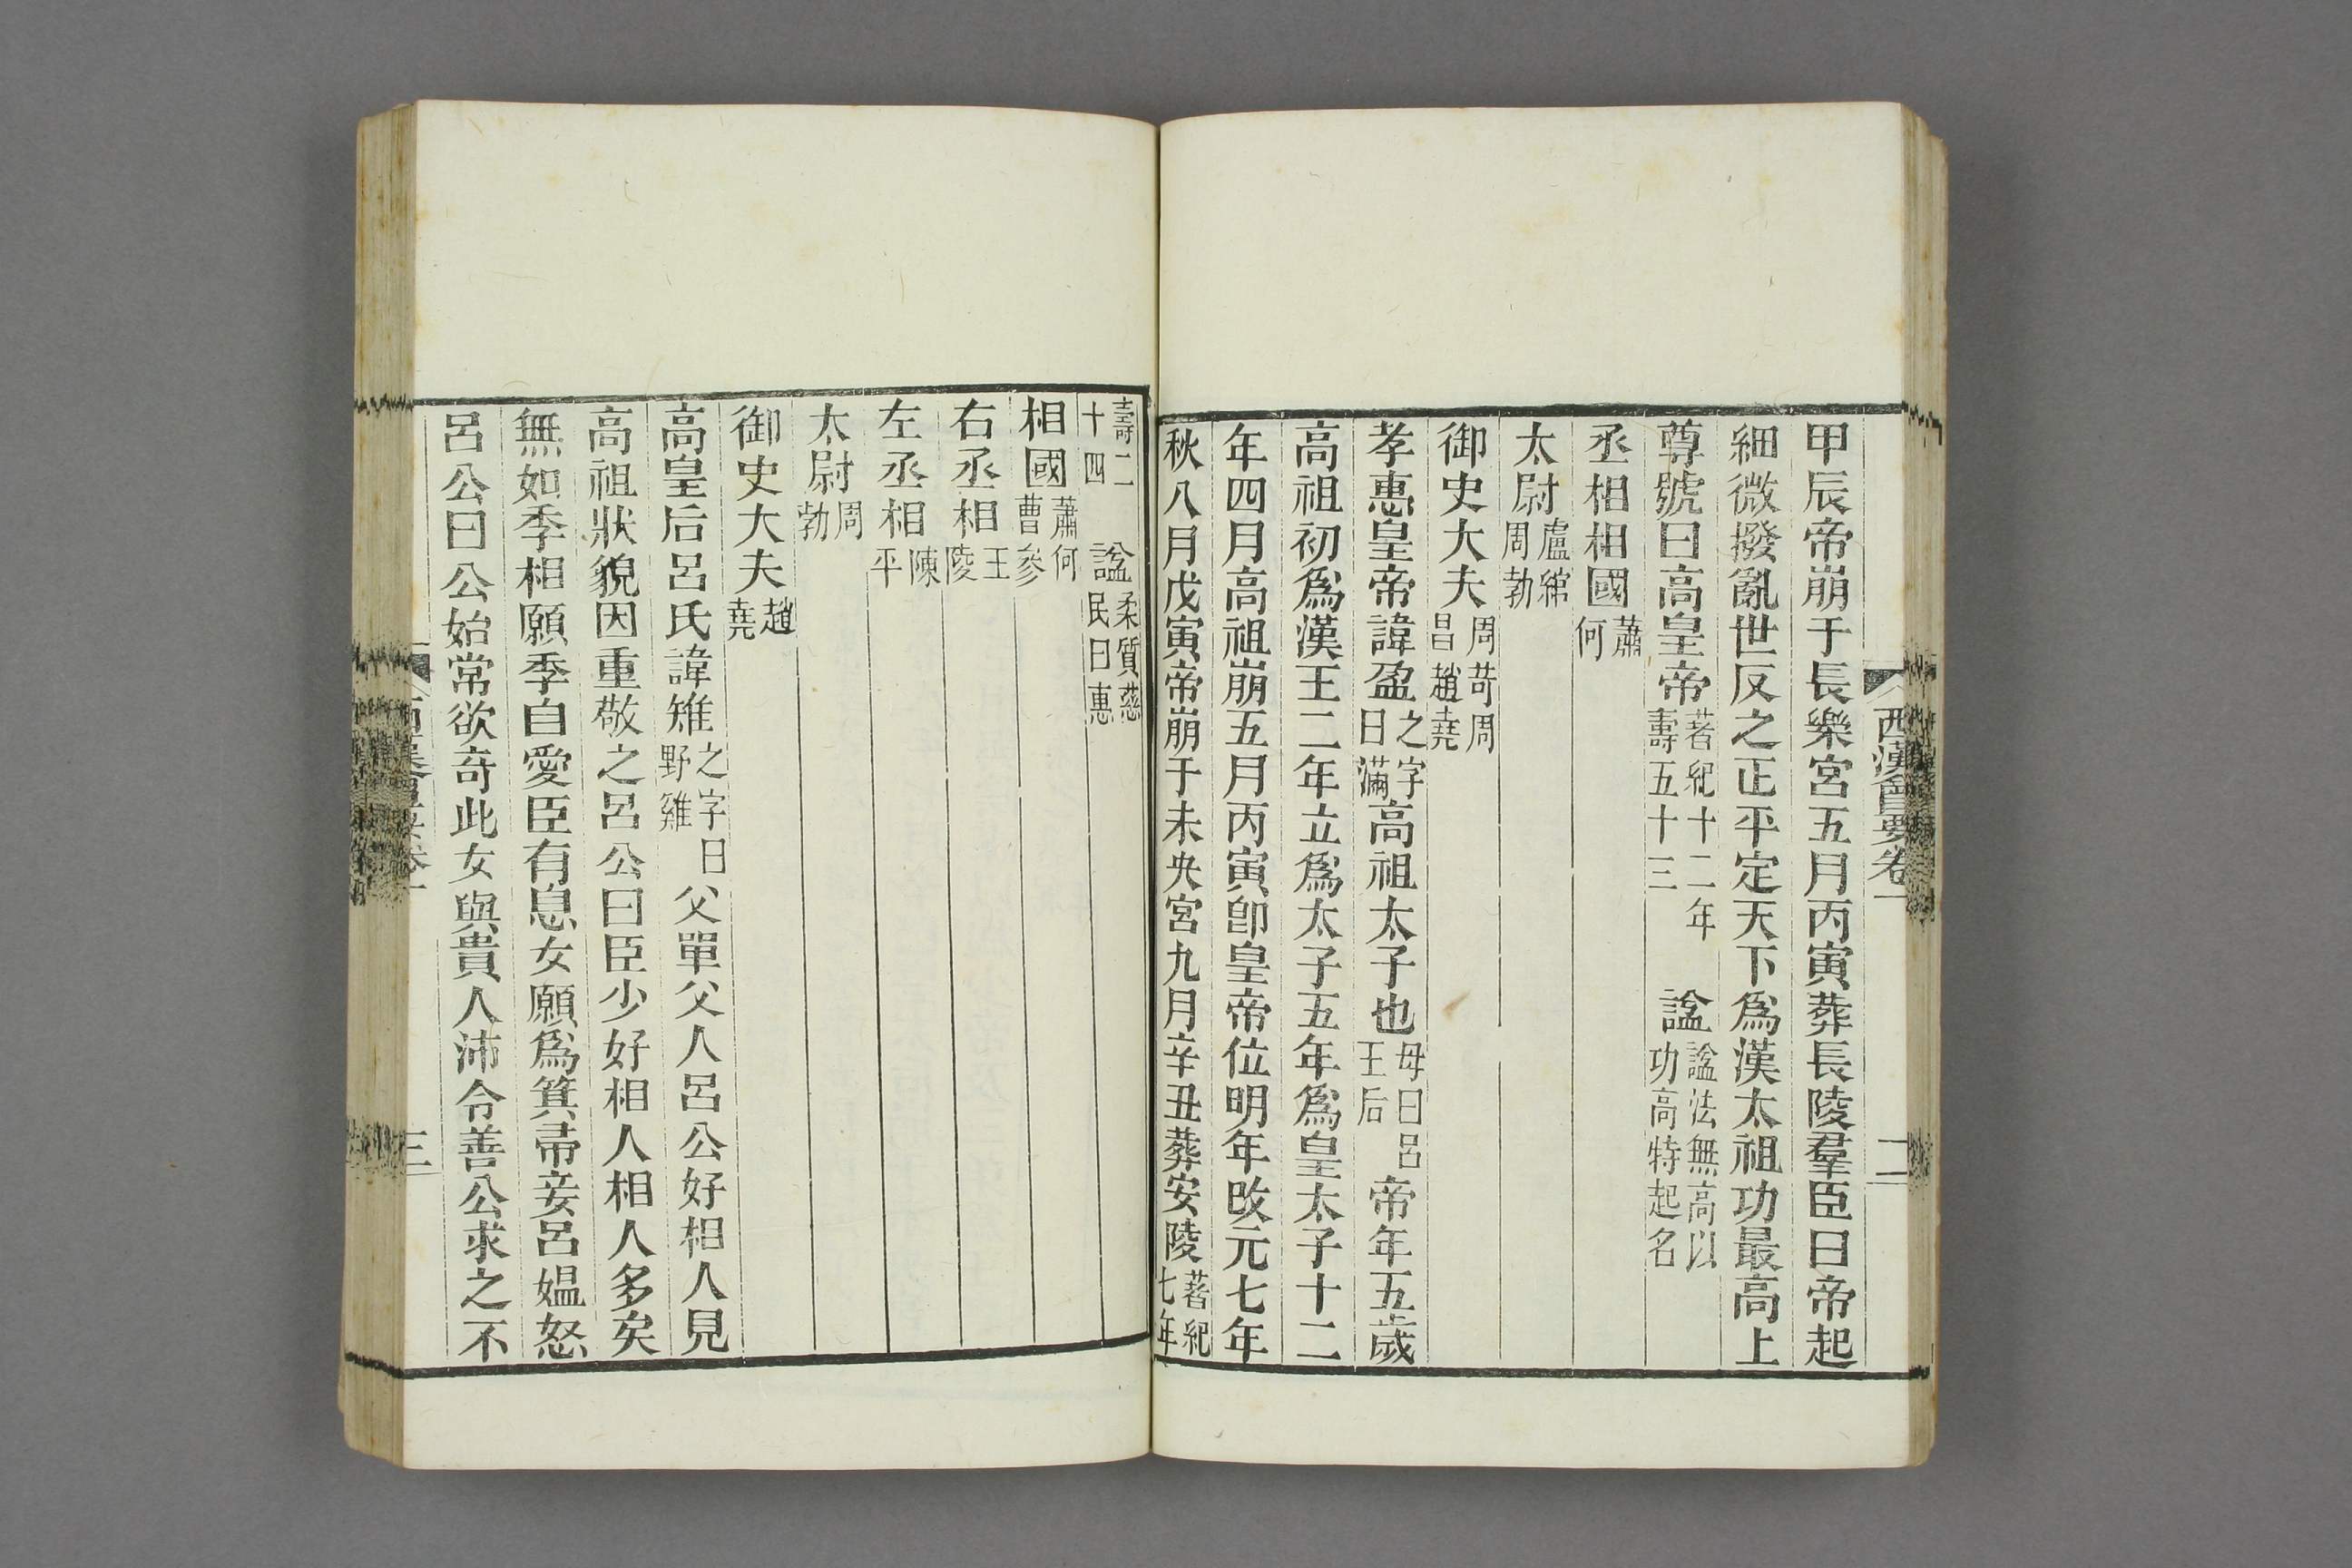 西漢會要卷一
二
甲辰帝崩于長樂宮五月丙寅葬長陵羣臣曰帝起
細微撥亂世反之正平定天下爲漢太祖功最高上
尊號曰高皇帝著紀十二年壽五十三 諡諡法無高以功高特起名
丞相相國蕭何
太尉盧綰周勃
御史大夫周苛周昌趙堯
孝惠皇帝諱盈之字曰滿高祖太子也母曰呂王后帝年五歲
高祖初爲漢王二年立爲太子五年爲皇太子十二
年四月高祖崩五月丙寅卽皇帝位明年改元七年
秋八月戊寅帝崩于未央宮九月辛丑葬安陵著紀七年
壽二十四 諡柔質慈民曰惠
相國蕭何曹參
右丞相王陵
左丞相陳平
太尉周勃
御史大夫趙堯
高皇后呂氏諱雉之字曰野雞父單父人呂公好相人見
高祖狀貌因重敬之呂公曰臣少好相人相人多矣
無如季相願季自愛臣有息女願爲箕帚妾呂媼怒
呂公曰公始常欲奇此女與貴人沛令善公求之不
三